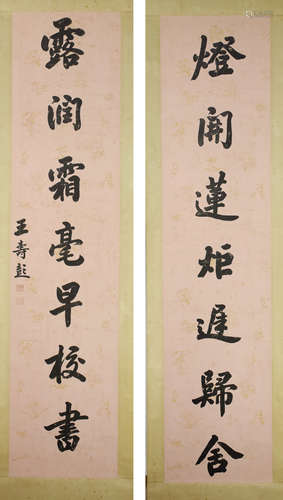 燈開蓮炬遲歸舍
露潤霜毫早校書
王壽彭